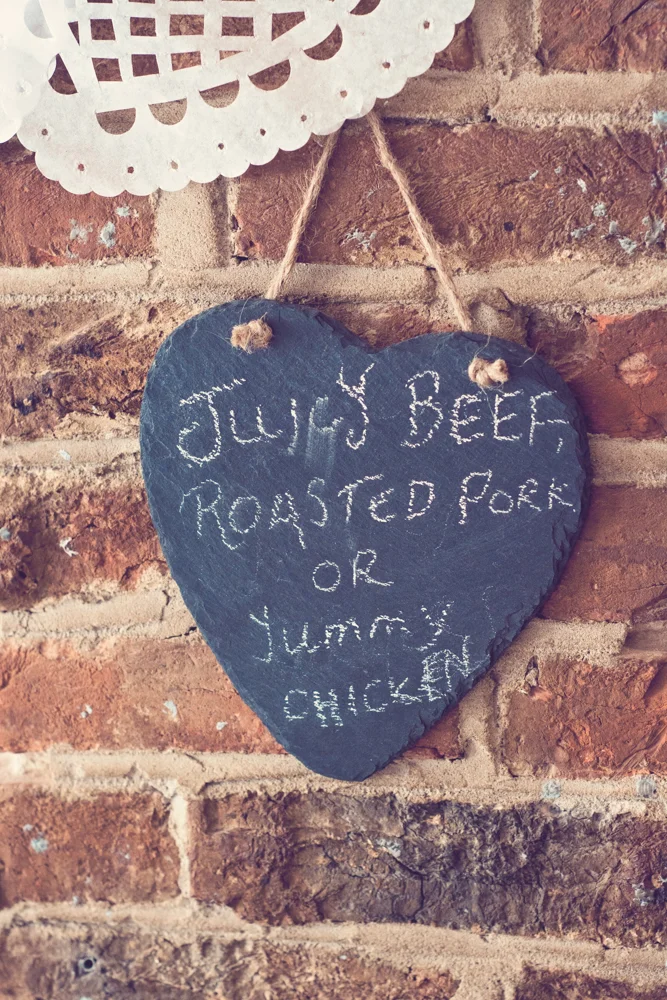 JUICY BEEF,
ROASTED PORK
OR
Yummy
CHICKEN